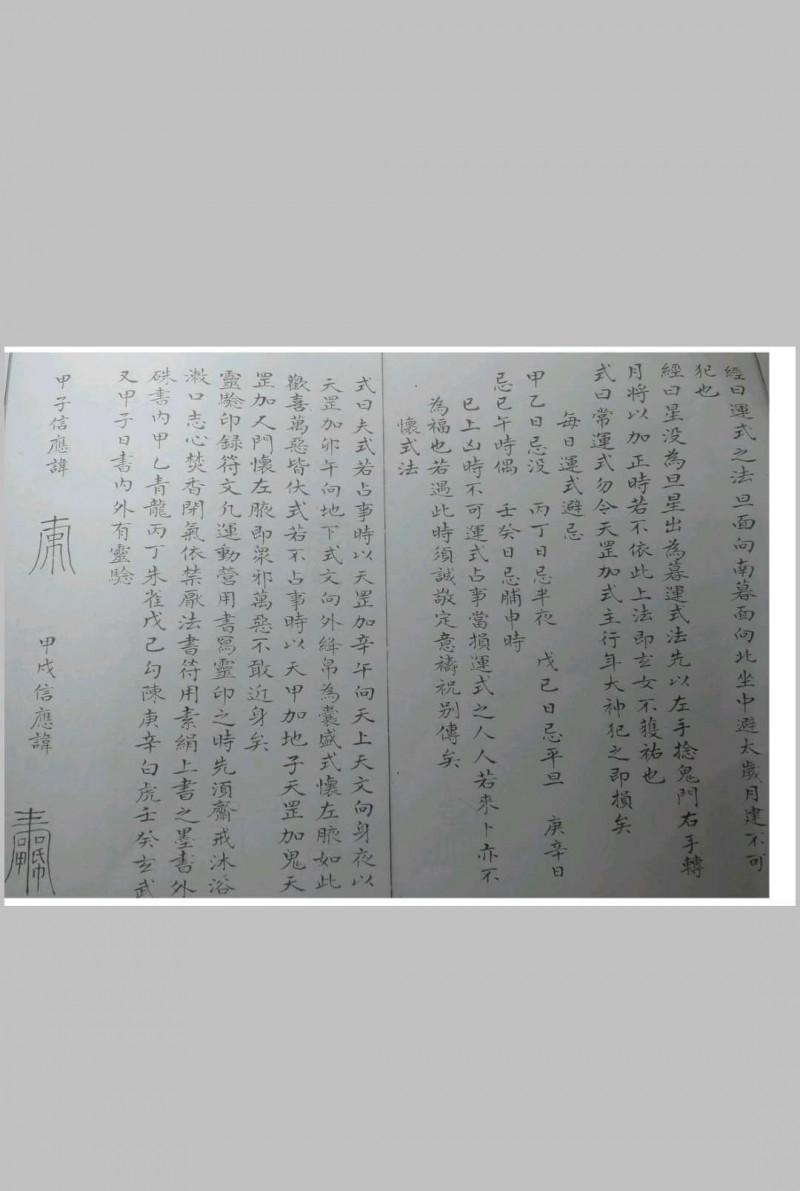 經曰運式之法旦面向南暮面向北坐中避太歲月建不可
犯也
經曰星没為旦星出為暮運式法先以左手捻鬼門右手轉
月將以加正時若不依此上法即玄女不䕶祐也
式曰常運式勿令天罡加式主行年大神犯之即損矣
每日運式避忌
甲乙日忌没　丙丁日忌半夜　戊己日忌平旦　庚辛日
忌巳午時偶　壬癸日忌脯申時
已上凶時不可運式占事當損運式之人人若來卜亦不
為福也若遇此時須誠敬定意禱祝别傳矣
懷式法
式曰夫式若占事時以天罡加辛午向天上天文向身夜以
天罡加卯午向地下式文向外絳帛為囊盛式懷左腋如此
歡喜萬惡皆伏式若不占事時以天甲加地子天罡加鬼天
罡加人門懷左腋即衆邪萬惡不敢近身矣
靈驗印録符文凡運動營用書寫靈印之時先須齋戒沐浴
漱口志心焚香閉氣依禁厭法書符用素絹上書之墨書外
硃書内甲乙青龍丙丁朱雀戊己勾陳庚辛白虎壬癸玄武
又甲子日書内外有靈驗
甲子信應諱　甲戌信應諱